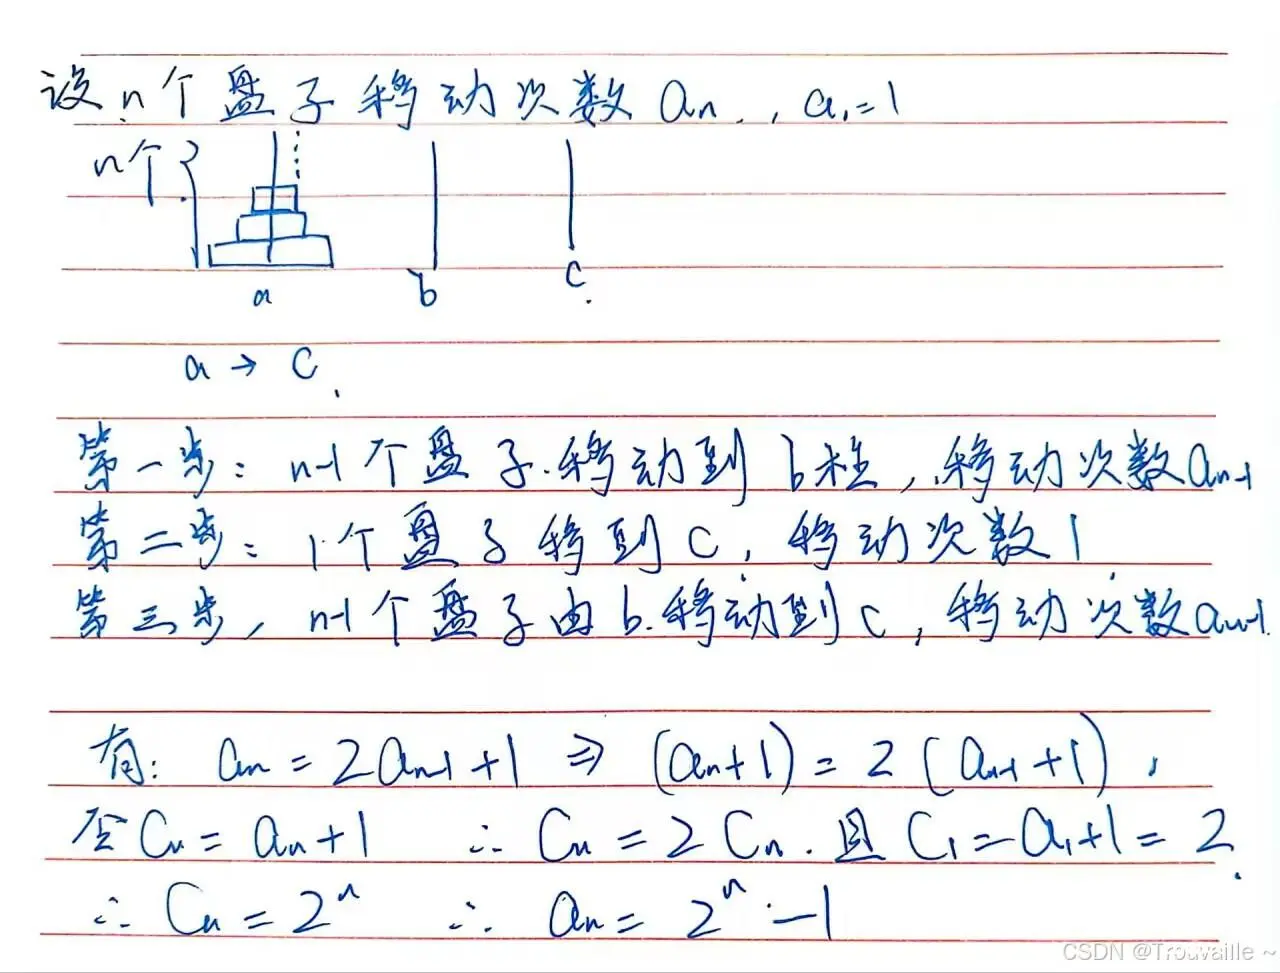 设n个盘子移动次数an，a1=1
n个
a b c
a → c
第一步：n-1个盘子移动到b柱，移动次数an-1
第二步：1个盘子移到c，移动次数1
第三步，n-1个盘子由b移动到c，移动次数an-1
有：an = 2an-1 + 1 ⇒ (an+1) = 2(an-1+1)，
令Cn = an+1 ∴ Cn = 2Cn. 且C1 = a1+1 = 2.
∴ Cn = 2^n ∴ an = 2^n - 1
CSDN @Trouvaille ~